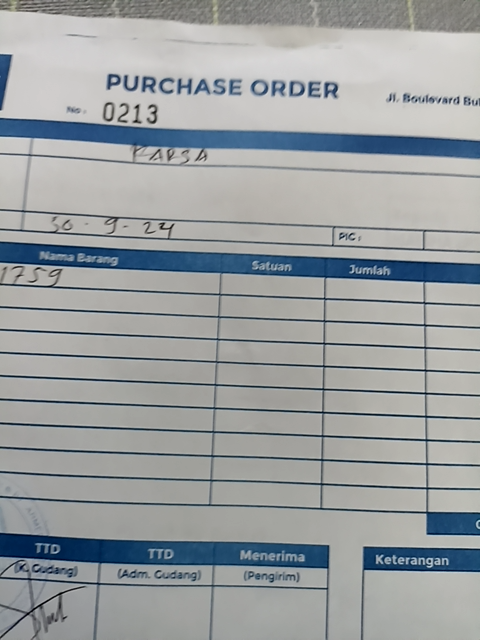 PURCHASE ORDER
Jl. Boulevard Bul
No : 0213
KARSA
30 - 9 - 24
PIC :
Nama Barang Satuan Jumlah
1759
TTD TTD Menerima
(K. Gudang) (Adm. Gudang) (Pengirim)
Keterangan